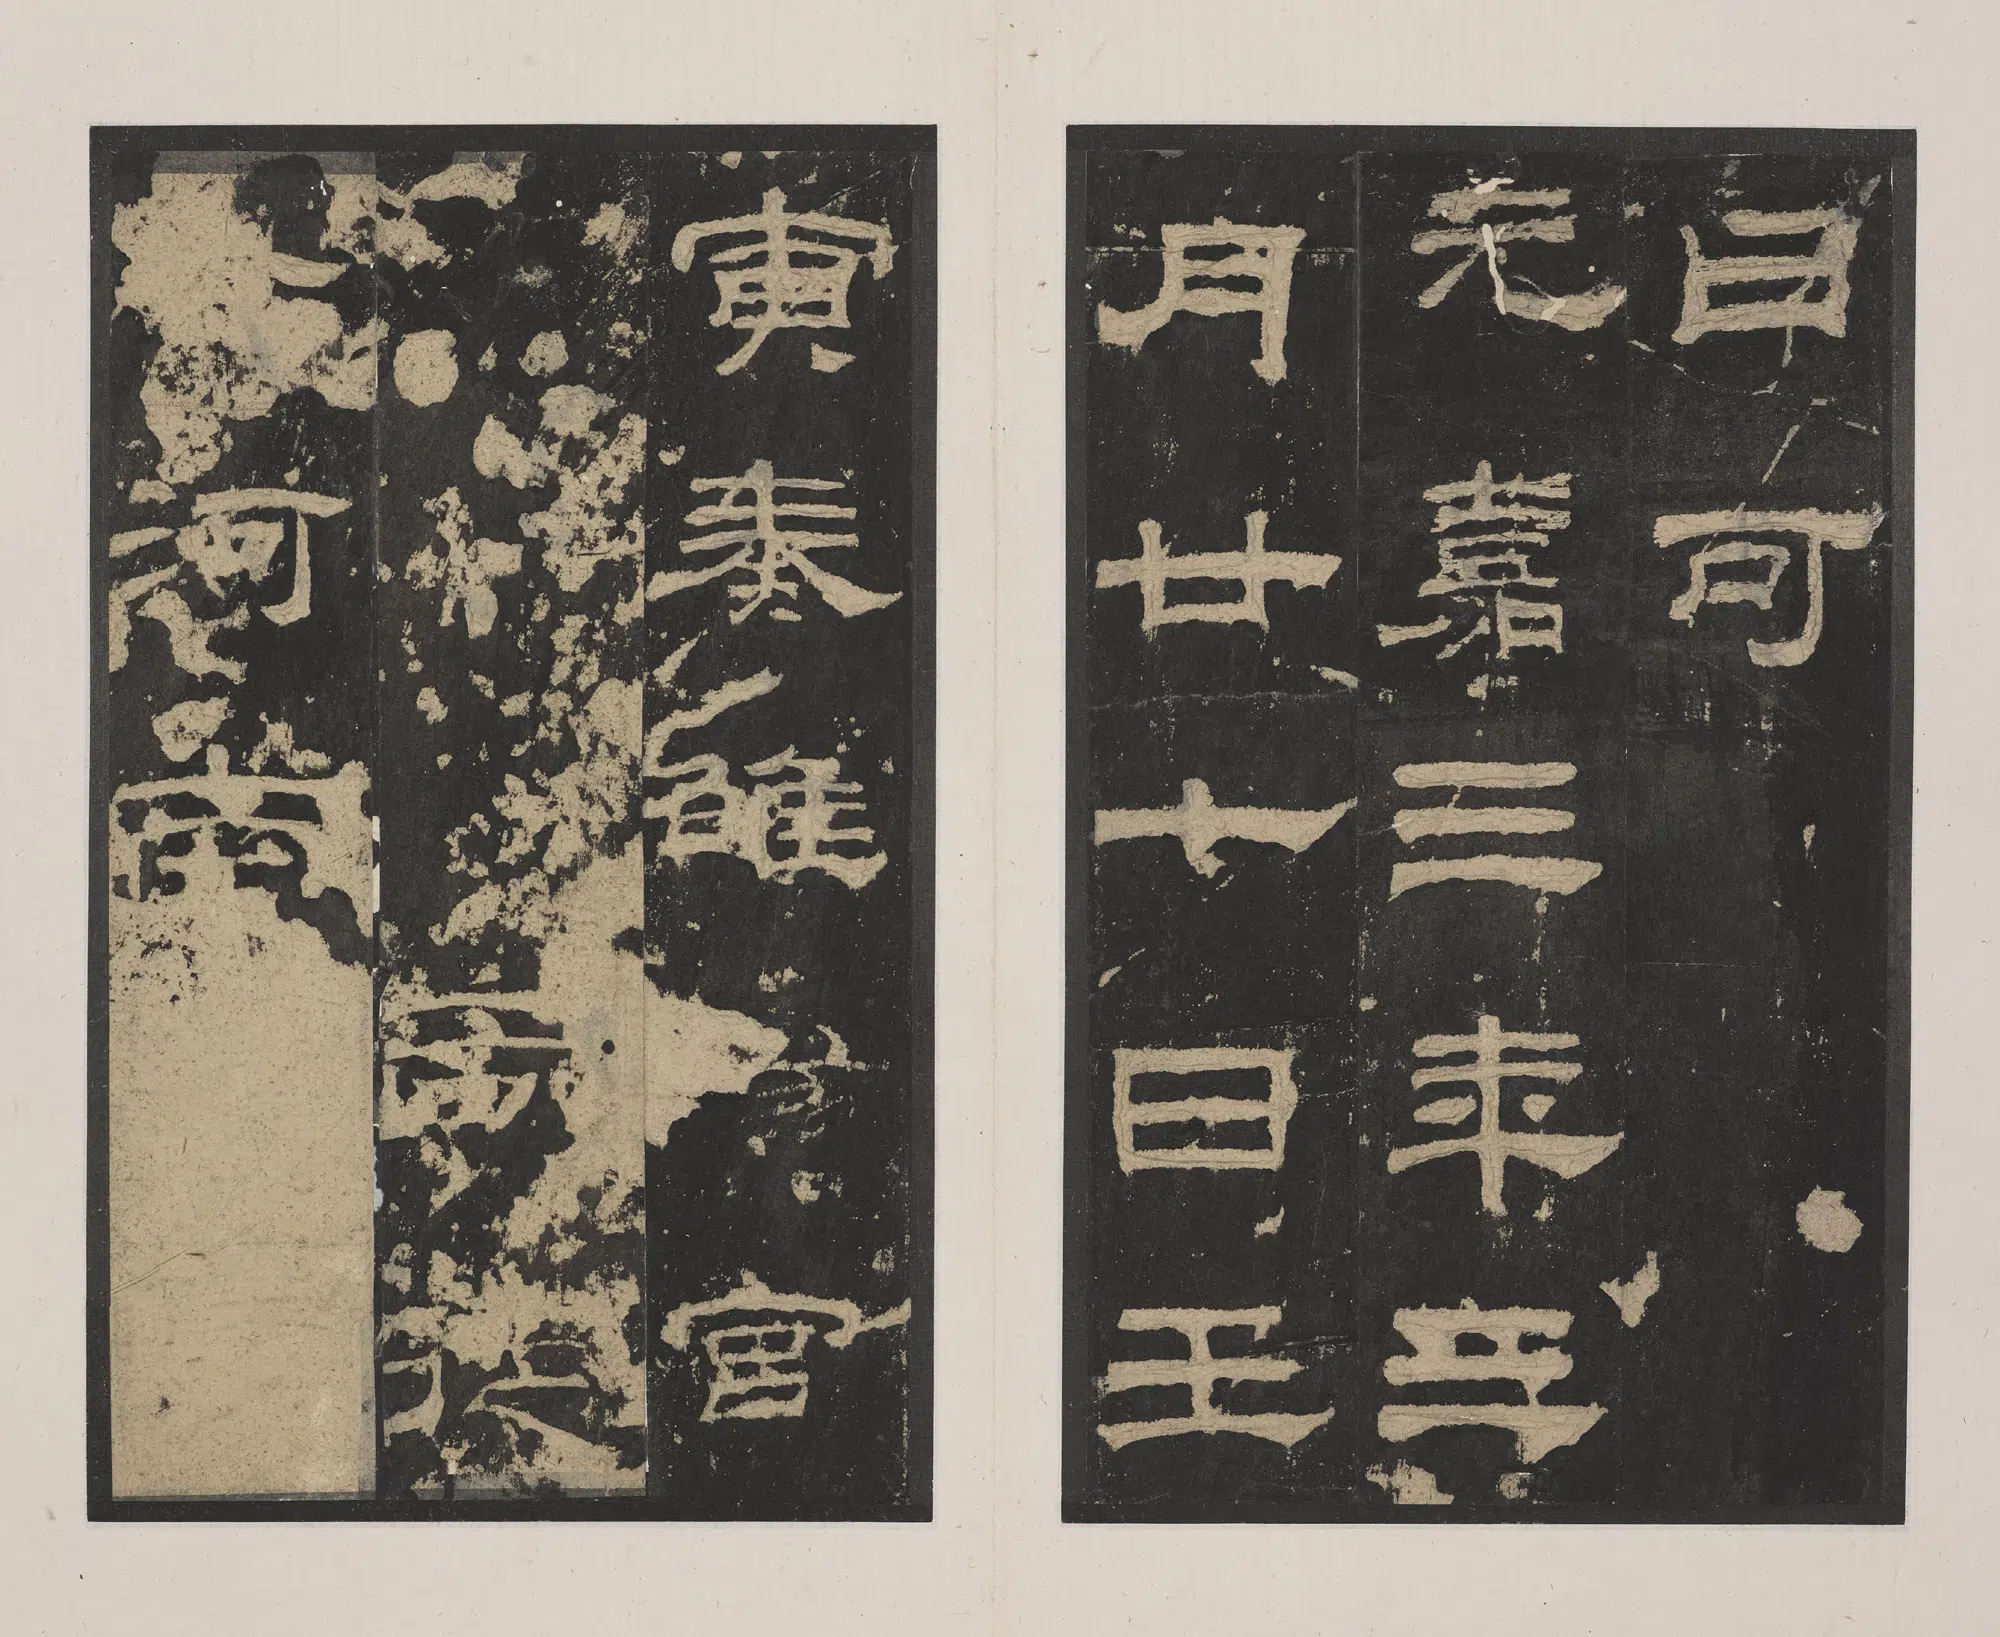 曰可
元嘉三年三
月廿七日壬
寅奏雒宮
司徒
公河南